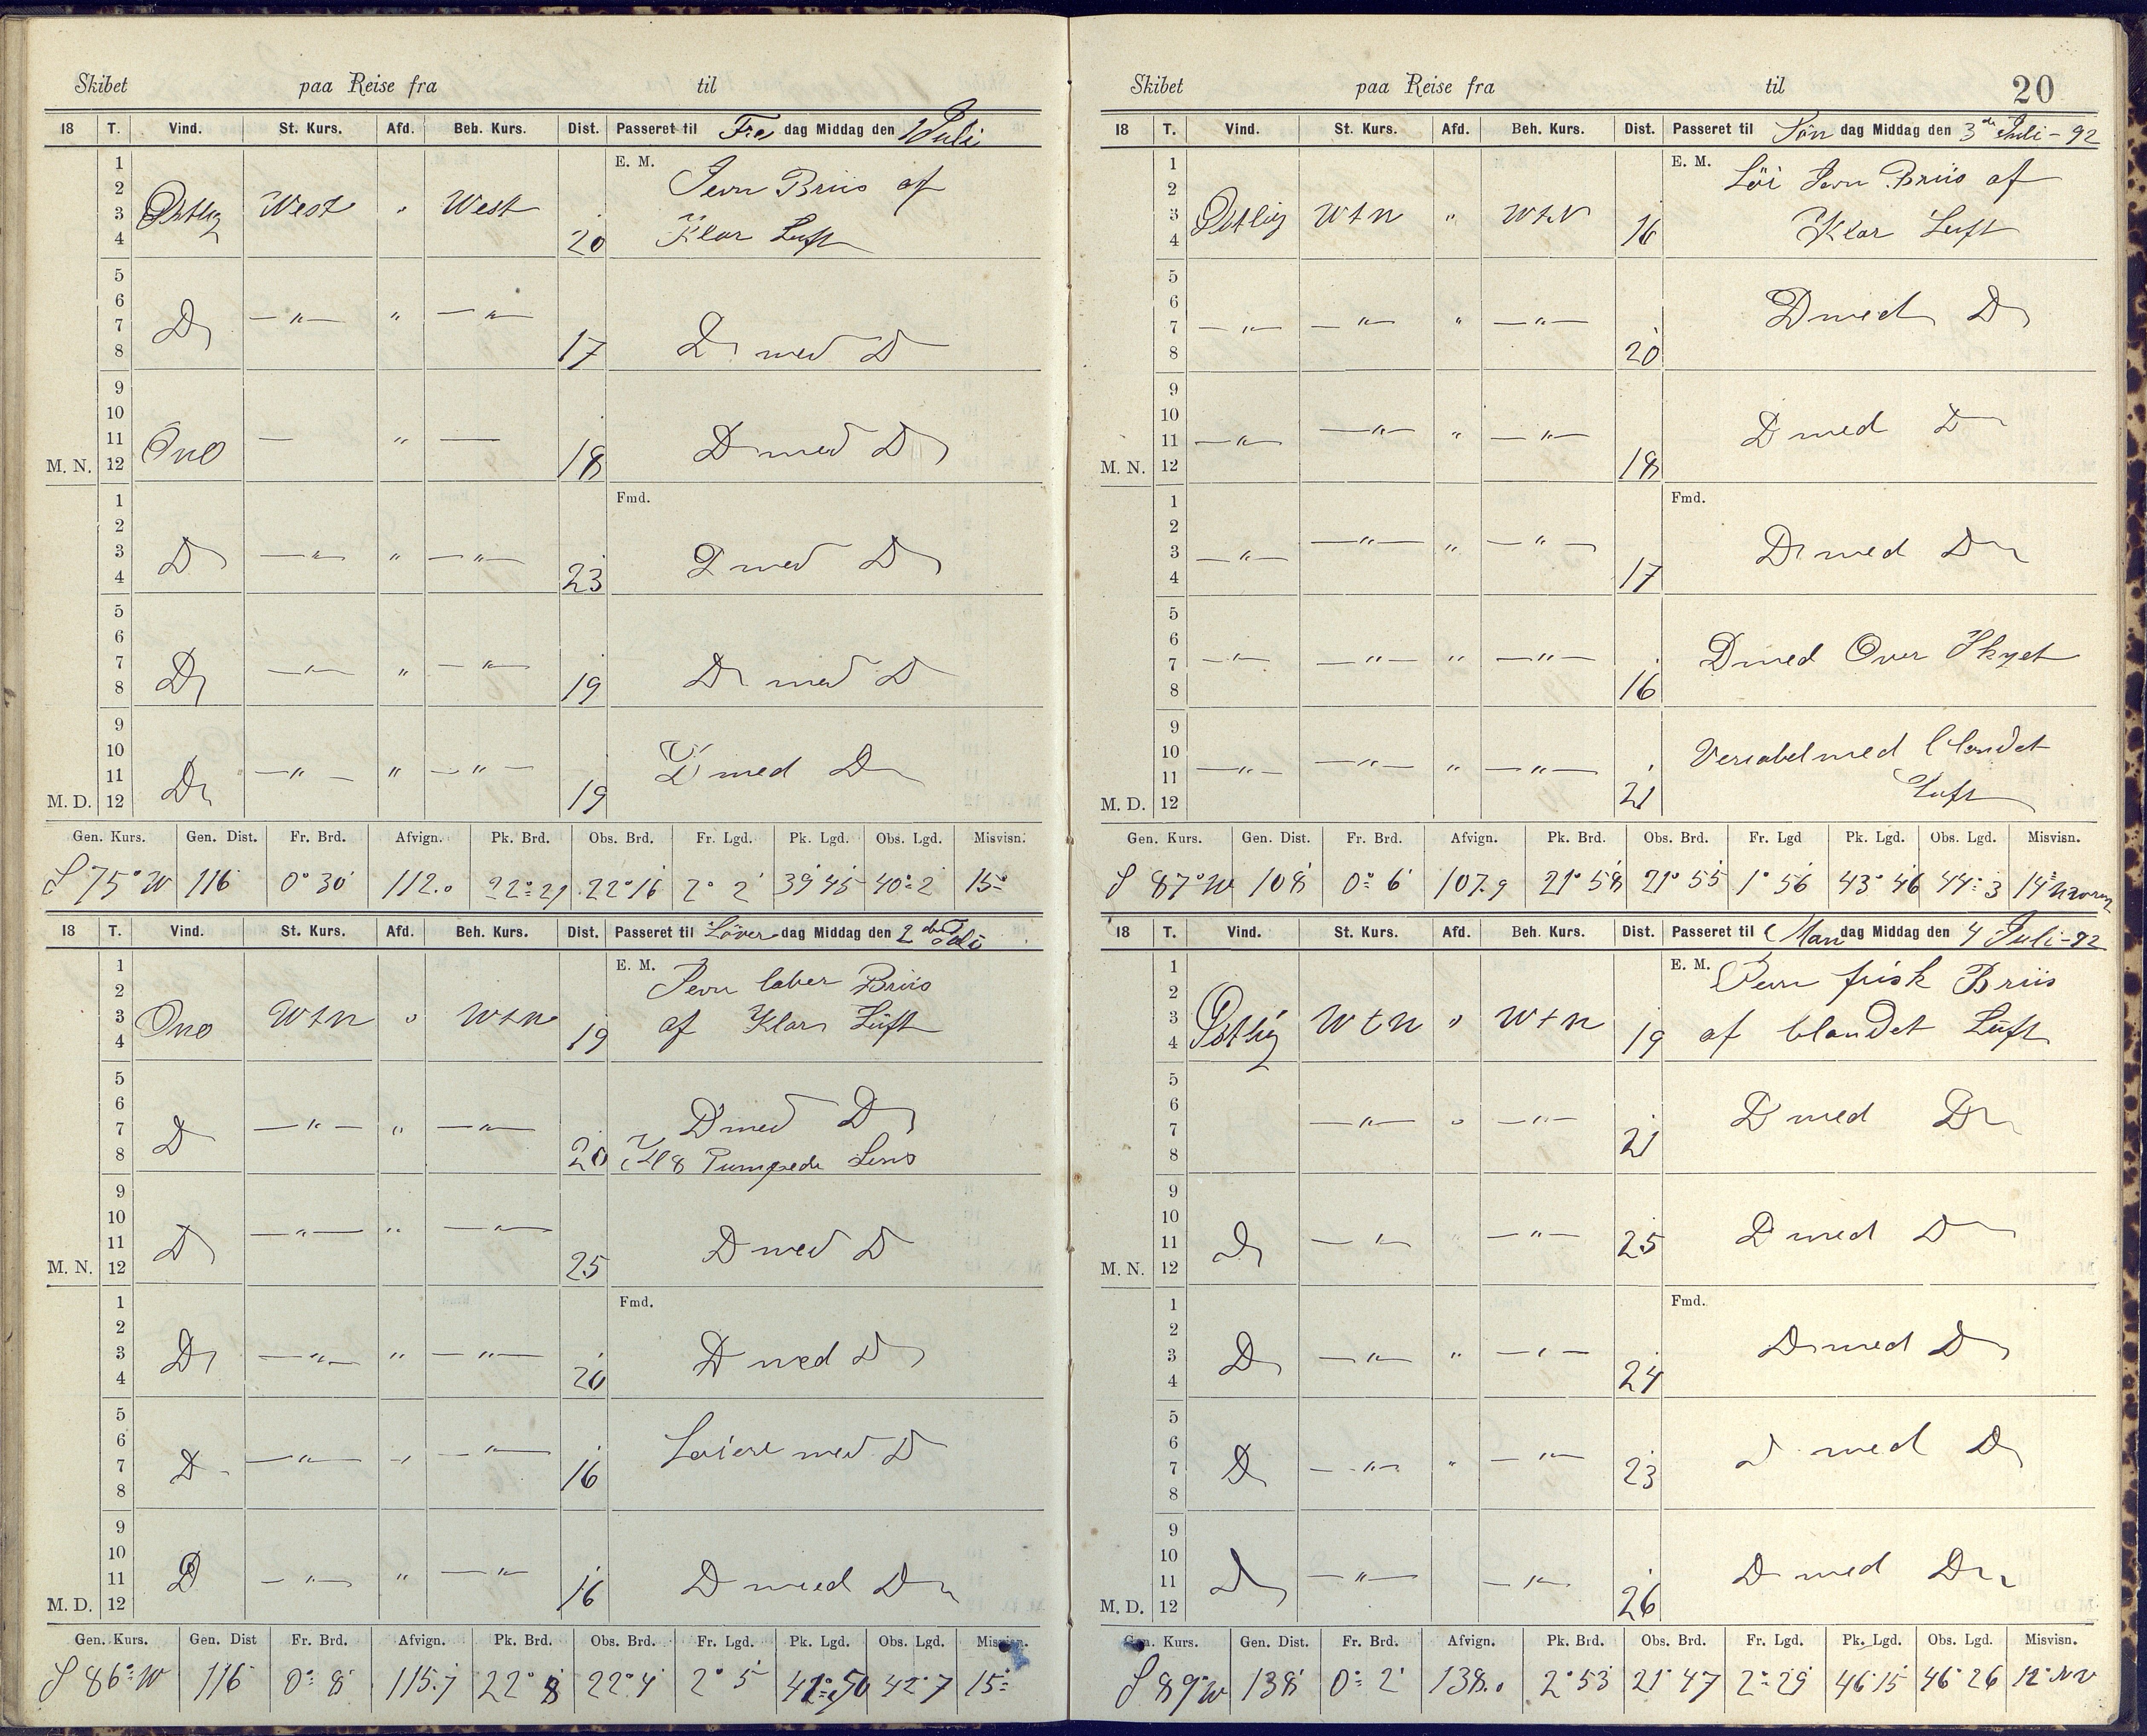 Skibet paa Reise fra til
18 T. Vind. St. Kurs. Afd. Beh. Kurs. Dist. Passeret til Fre dag Middag den 1 Juli
1 E. M. Jevn Briis af
2
3 Østlig West " West
4 20 Klar Luft
5
6
7 Do —"— " —"—
8 17 Do med Do
9
10
11 Ono — " —
M. N. 12 18 D med D
1 Fmd.
2
3 D —"— " —"—
4 23 D med D
5
6
7 D —"— " —"—
8 19 D med D
9
10
11 D —"— " —"— D med D
M. D. 12 19
Gen. Kurs. Gen. Dist. Fr. Brd. Afvign. Pk. Brd. Obs. Brd. Fr. Lgd. Pk. Lgd. Obs. Lgd. Misvisn.
S 75° W 116 0° 30' 112.0 22° 21 22° 16 2° 2' 39 45 40° 2' 15°
18 T. Vind. St. Kurs. Afd. Beh. Kurs. Dist. Passeret til Löver dag Middag den 2 den Juli
1 E. M. Jevn laber Briis
2
3 Ono Wtn " Wtn
4 19 af Klar Luft
5
6
7 D —"— " —"— D med D
8 20 Kl 8 Pumpede Lens
9
10
11 D —"— " —"—
M. N. 12 25 D med D
1 Fmd.
2
3 D —"— " —"— D med D
4 20
5
6 Löiere med D
7 D —"— " —"— 16
8
9
10
11 D —"— " —"— D med D
M. D. 12 16
Gen. Kurs. Gen. Dist Fr. Brd. Afvign. Pk. Brd. Obs. Brd. Fr. Lgd. Pk. Lgd. Obs. Lgd. Misvisn.
S 86° W 116 0° 8' 115.7 22° 8 22° 4 2° 5' 50 42° 7 15°
Skibet paa Reise fra til 20
18 T. Vind. St. Kurs. Afd. Beh. Kurs. Dist. Passeret til Søn dag Middag den 3 de Juli - 92
1 E. M. Löi Jevn Briis af
2
3 Østlig Wtn " WtN 16
4 Klar Luft
5
6 D med D
7 —"— —"— " —"—
8 20
9
10 D med D
11 —"— —"— " —"—
M. N. 12 18
1 Fmd.
2
3 —"— —"— " —"— D med D
4 17
5
6
7 —"— —"— " —"— D med Over Skyet
8 16
9
10 Veriabel med blandet
11 —"— —"— " —"—
M. D. 12 21 Luft
Gen. Kurs. Gen. Dist. Fr. Brd. Afvign. Pk. Brd. Obs. Brd. Fr. Lgd Pk. Lgd. Obs. Lgd. Misvisn.
S 87° W 108 0° 6' 107.9 21° 58 21° 55 1° 56 43° 46 44° 3 14°
18 T. Vind. St. Kurs. Afd. Beh. Kurs. Dist. Passeret til Man dag Middag den 4 Juli - 92
1 E. M. Jevn frisk Briis
2
3 Østlig Wtn " Wtn
4 19 af blandet Luft
5
6 D med D
7 —"— " —"— 21
8
9
10
11 D —"— —"— 25 D med D
M. N. 12
1 Fmd.
2
3 D —"— " —"— D med D
4 24
5
6 D med D
7 D —"— " —"— 23
8
9
10
11 D —"— —"— D med D
M. D. 12 26
Gen. Kurs. Gen. Dist. Fr. Brd. Afvign. Pk. Brd. Obs. Brd. Fr. Lgd. Pk. Lgd. Obs. Lgd. Misvisn.
S 89° W 138 0° 2' 138.0 2° 53 21° 47 2° 29 46 15 46° 26 12° NV